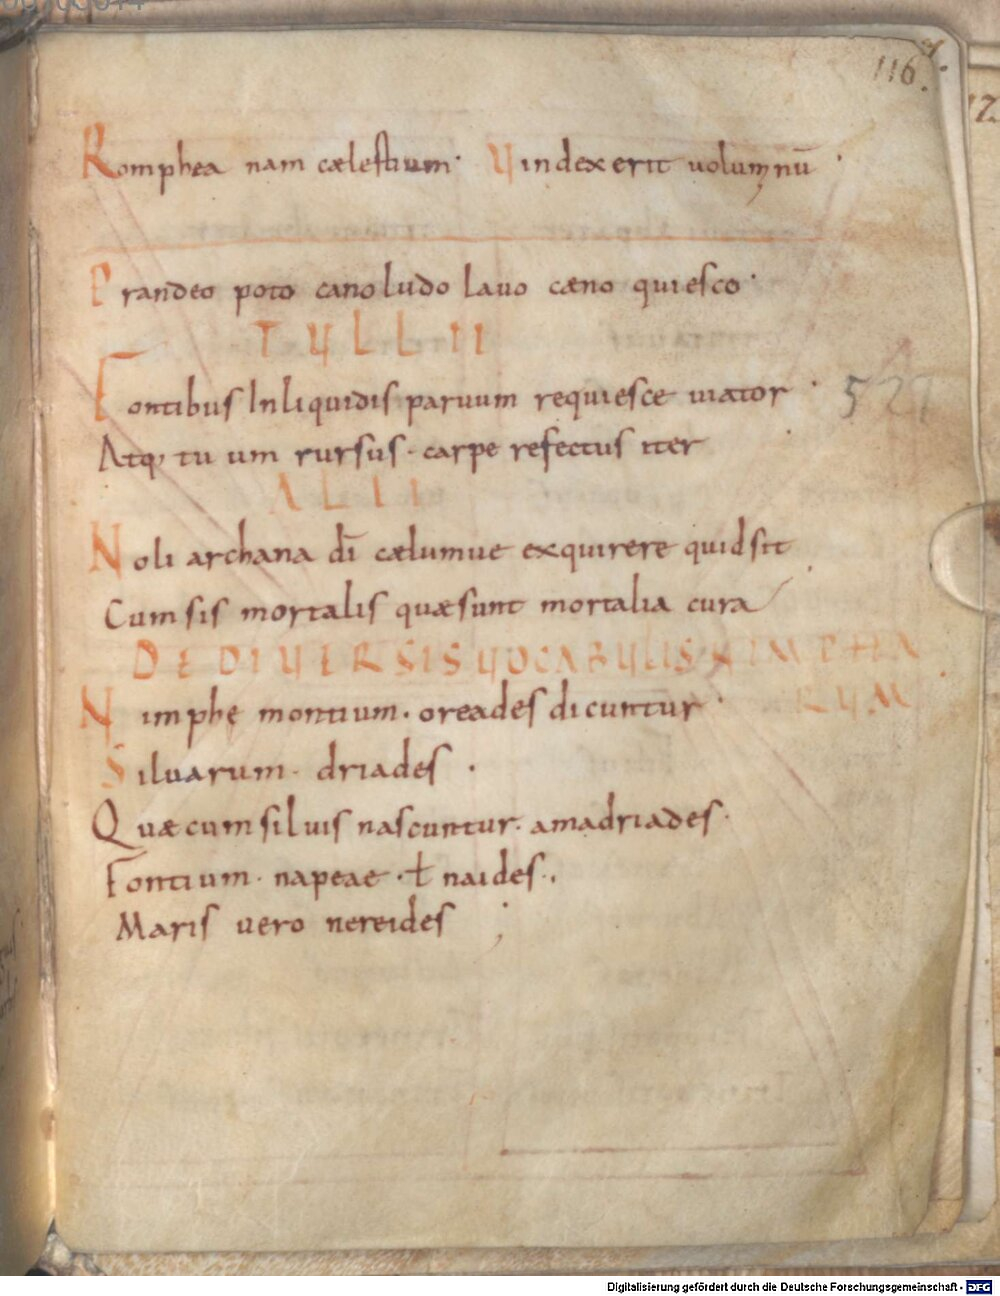 116.
Romphea nam cælestium· Vindex erit uolumnū·
Prandeo poto cano ludo lauo cæno quiesco·
TVLLII
Fontibus In liquidis paruum requiesce uiator·
Atq; tuum rursus·carpe refectus iter·
ALII
Noli archana dī cælumue exquirere quid sit
Cum sis mortalis quæ sunt mortalia cura
DE DIVERSIS VOCABVLIS NIMPHA
RVM
Nimphę montium·oreades dicuntur·
Siluarum· driades ·
Quæ cum siluis nascuntur· amadriades·
Fontium· napeae·ł naides·.
Maris uero nereides ;
Digitalisierung gefördert durch die Deutsche Forschungsgemeinschaft - DFG